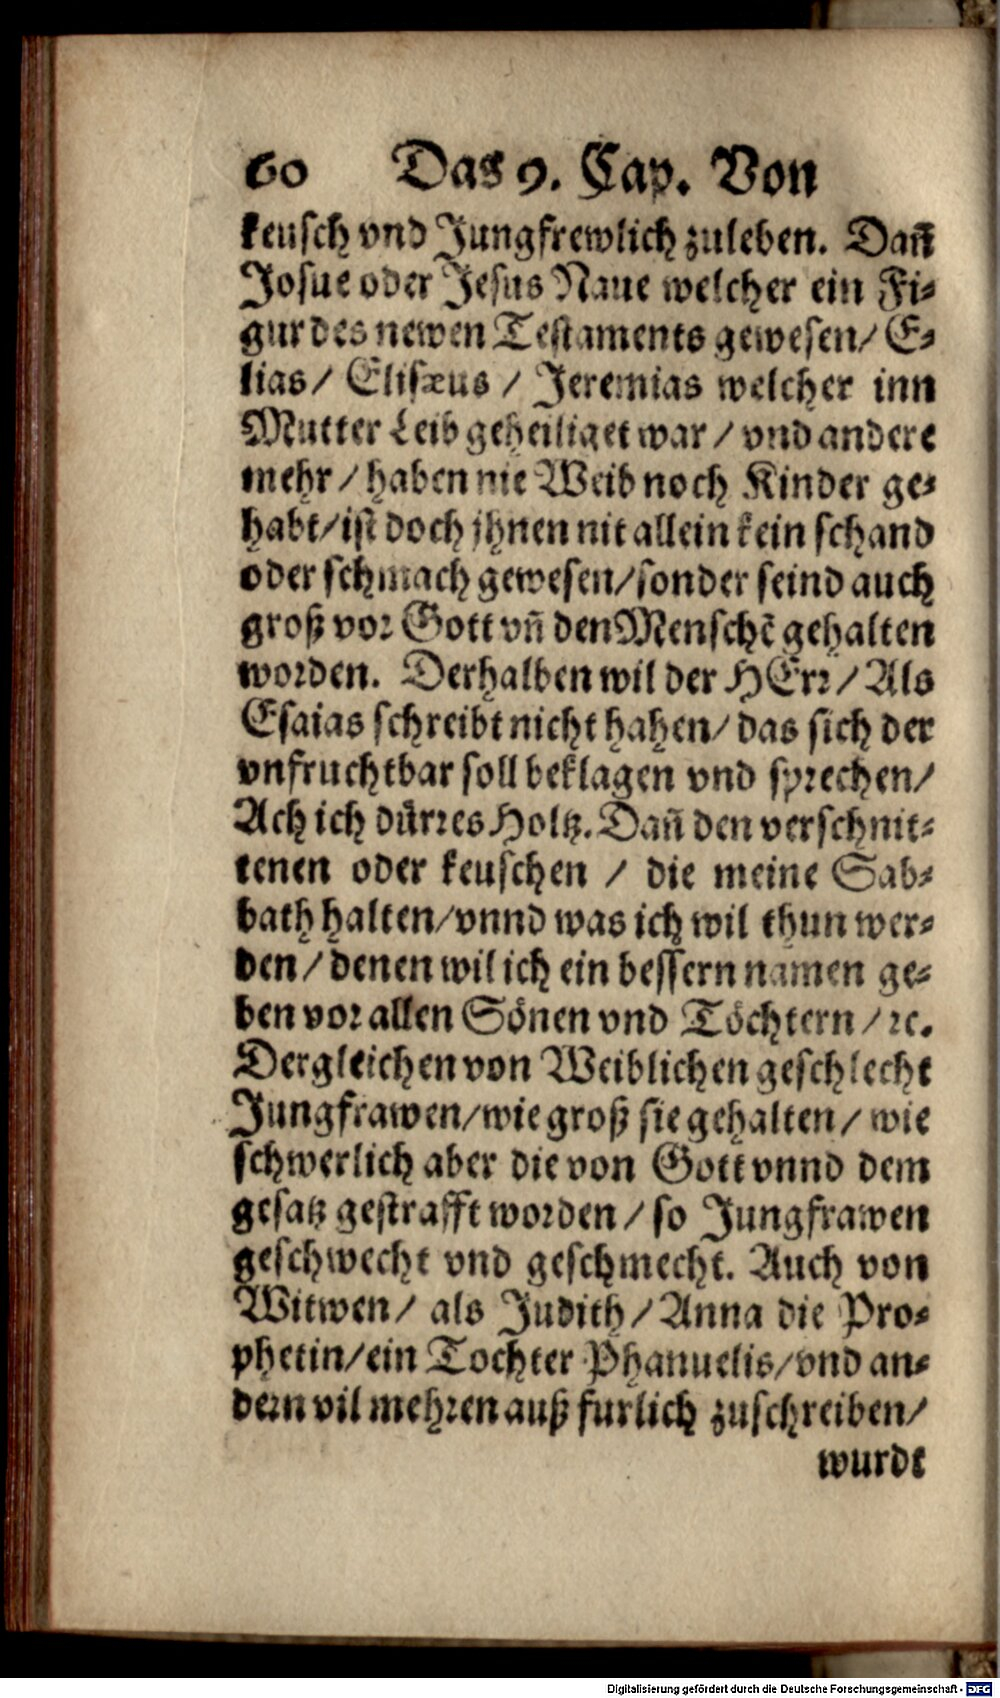 60 Das 9. Cap. Von
keusch vnd Jungfrewlich zuleben. Dañ
Josue oder Jesus Naue welcher ein Fi-
gur des newen Testaments gewesen/ E-
lias/ Elisæus / Jeremias welcher inn
Mutter Leib geheiliget war / vnd andere
mehr / haben nie Weib noch Kinder ge-
habt/ ist doch jhnen nit allein kein schand
oder schmach gewesen/ sonder seind auch
groß vor Gott vñ den Menschẽ gehalten
worden. Derhalben wil der HErr / Als
Esaias schreibt nicht hahen/ das sich der
vnfruchtbar soll beklagen vnd sprechen/
Ach ich dürres Holtz. Dañ den verschnit-
tenen oder keuschen / die meine Sab-
bath halten/ vnnd was ich wil thun wer-
den / denen wil ich ein bessern namen ge-
ben vor allen Sönen vnd Töchtern / ꝛc.
Dergleichen von Weiblichen geschlecht
Jungfrawen/ wie groß sie gehalten / wie
schwerlich aber die von Gott vnnd dem
gesatz gestrafft worden / so Jungfrawen
geschwecht vnd geschmecht. Auch von
Witwen/ als Judith / Anna die Pro-
phetin/ ein Tochter Phanuelis/ vnd an-
dern vil mehren auß furlich zuschreiben/
wurde
Digitalisierung gefördert durch die Deutsche Forschungsgemeinschaft - DFG